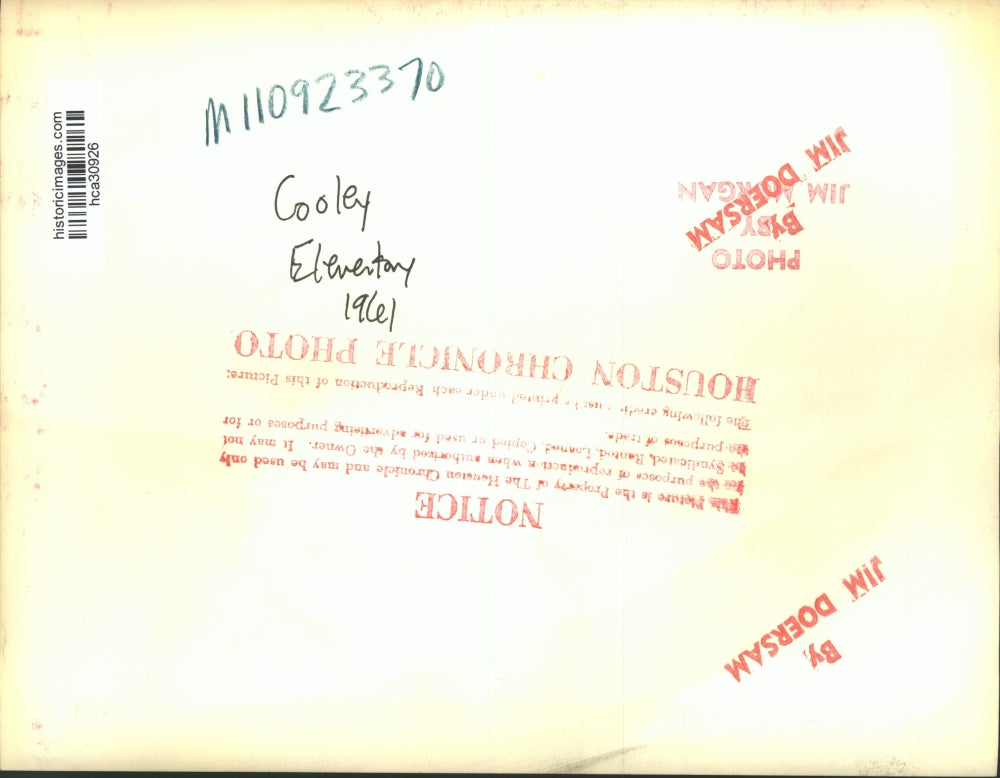 M110923370
historicimages.com
hca30926
Cooley
Elementary
1961
PHOTO
BY
JIM MORGAN
By
JIM DOERSAM
NOTICE
This Picture is the Property of The Houston Chronicle and may be used only
for the purposes of reproduction when authorized by the Owner. It may not
be Syndicated, Rented, Loaned, Copied or used for advertising purposes or for
the purposes of trade.
The following credit must be printed under each Reproduction of this Picture:
HOUSTON CHRONICLE PHOTO
By
JIM DOERSAM